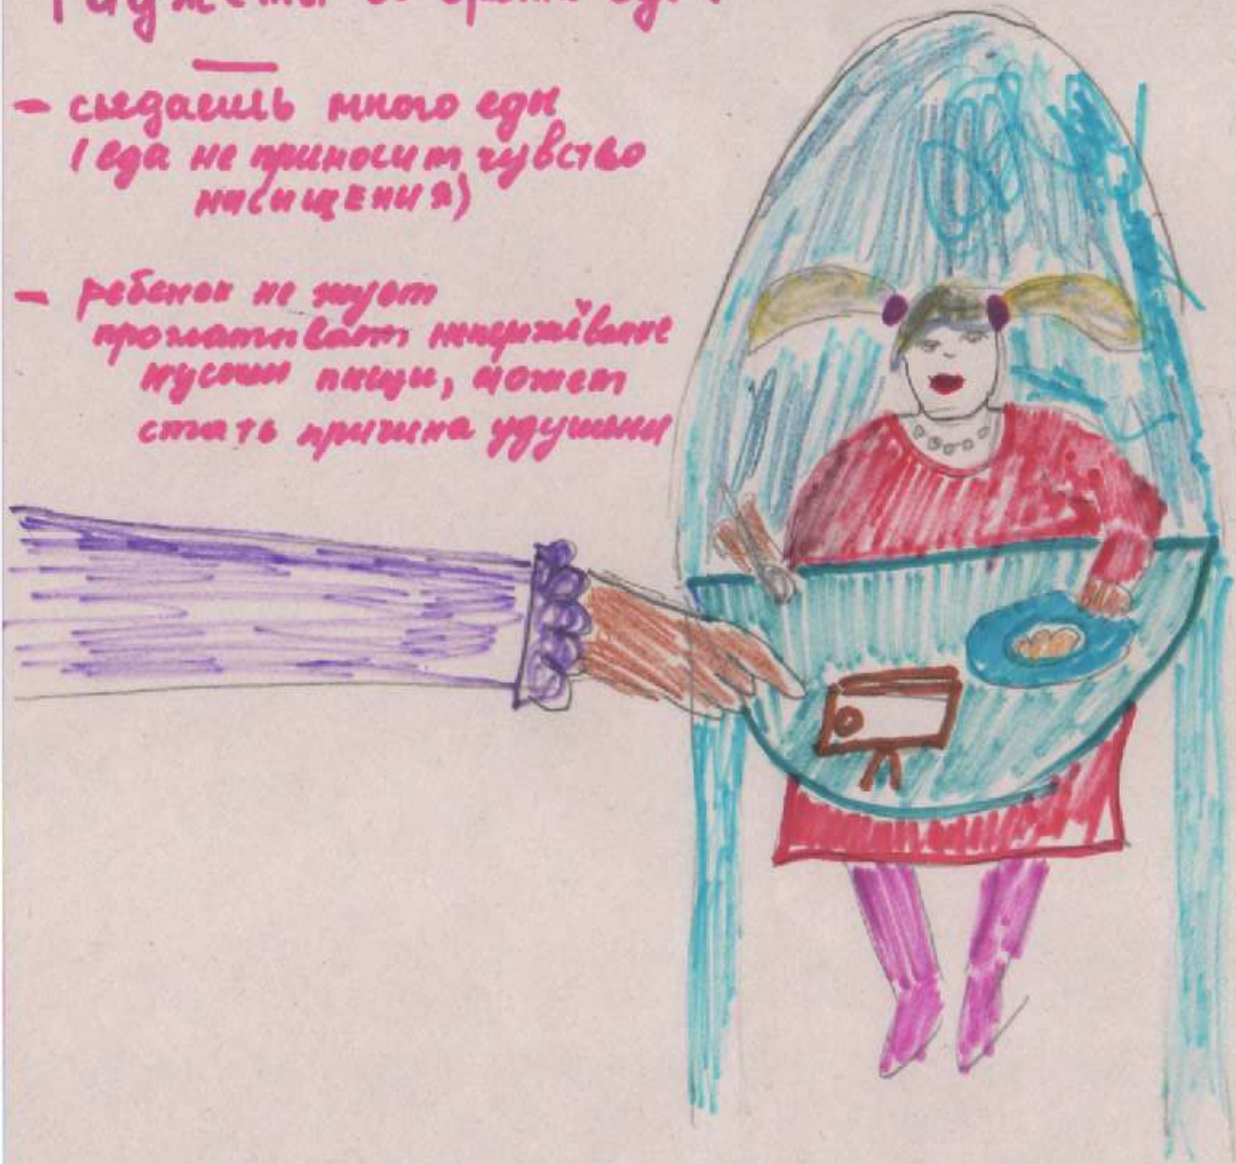 Гаджеты во время еды
- съедаешь много еды
(еда не приносит чувство
насищения)
- ребенок не жует
проглатывает непережёваные
кусочки пищи, может
стать причина удушения